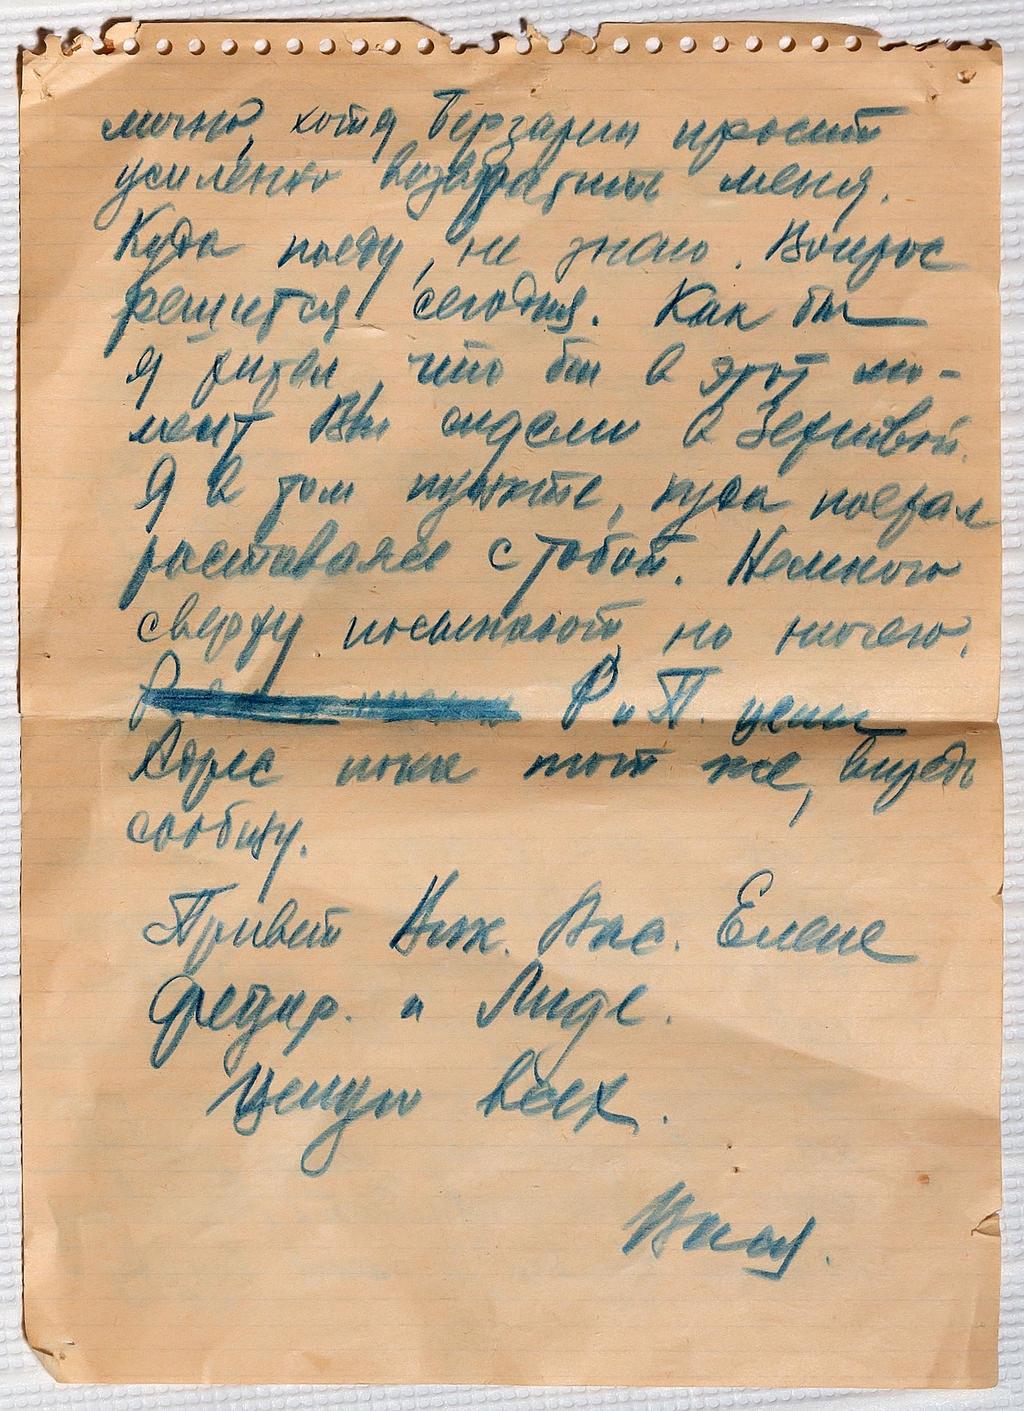 мично, хотя Берзарин просит
усиленно возвратить меня.
Куда поеду, не знаю. Вопрос
решится сегодня. Как бы
я хотел, что бы в этот мо-
мент Вы сидели в
Я в том пункте, куда поехал
расставаясь с тобой. Немного
сверху посыпают, но ничего.
Р и П. целы
Адрес пока тот же, впредь
сообщу.
Привет Ник. Вас. Елене
Федир. и Лиде.
Целую всех.
Вася.